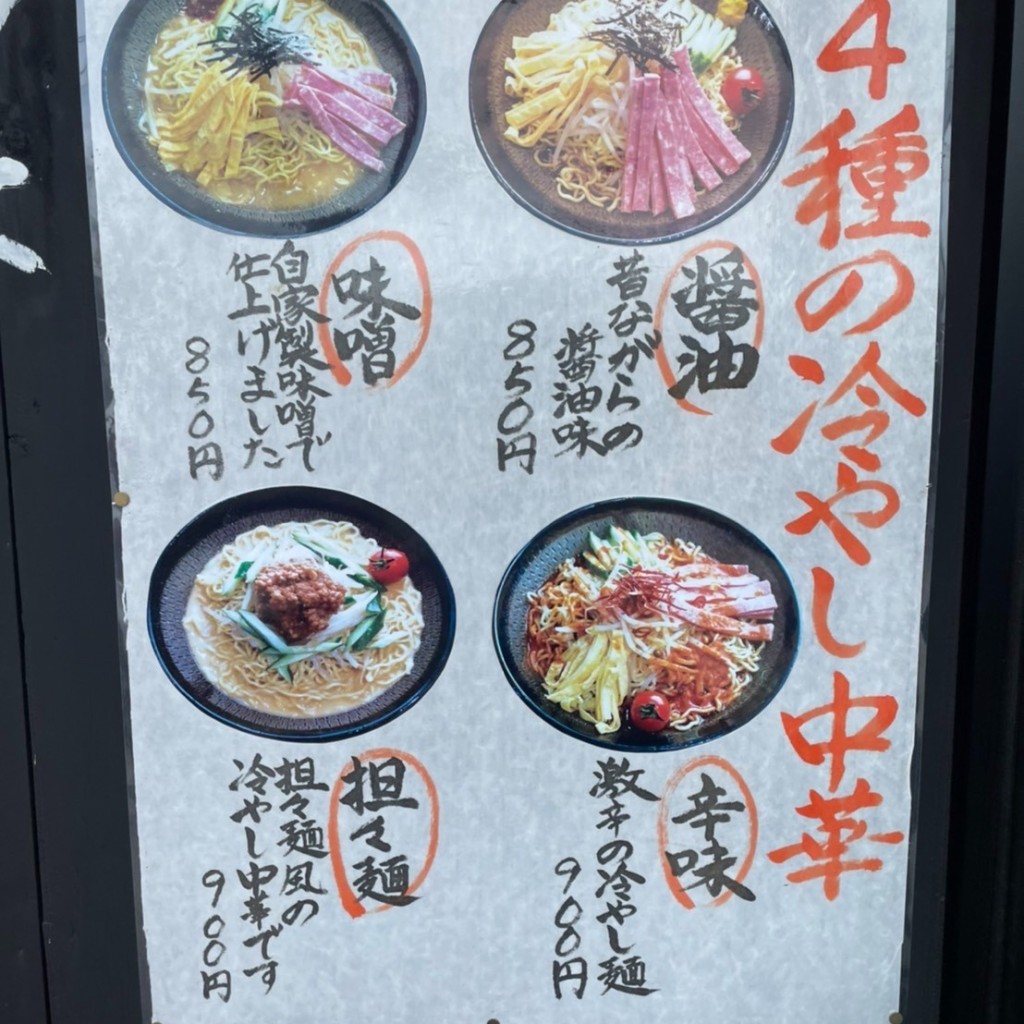 4種の冷やし中華
醤油
昔ながらの
醤油味
850円
味噌
自家製味噌で
仕上げました
850円
辛味
激辛の冷やし麺
900円
担々麺
担々麺風の
冷やし中華です
900円